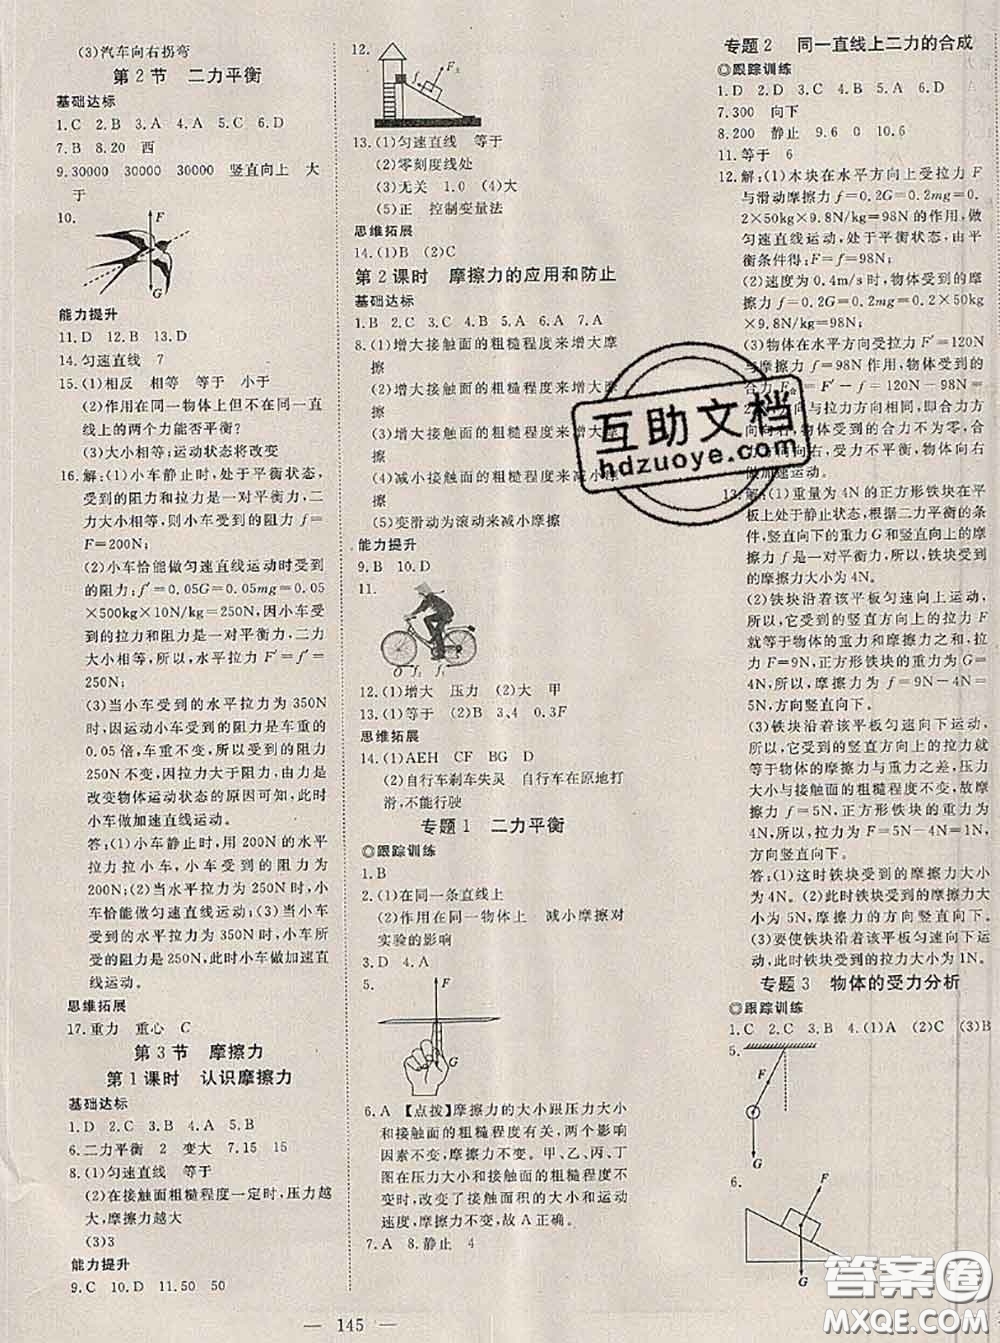 (3)汽车向右拐弯
第2节 二力平衡
基础达标
1.C 2.B 3.A 4.A 5.C 6.D
7.B 8.20 西
9.30000 30000 30000 竖直向上 大
于
10.
F
G
能力提升
11.D 12.B 13.D
14.匀速直线 7
15.(1)相反 相等 等于 小于
(2)作用在同一物体上但不在同一直
线上的两个力能否平衡?
(3)大小相等;运动状态将改变
16.解:(1)小车静止时,处于平衡状态,
受到的阻力和拉力是一对平衡力,二
力大小相等,则小车受到的阻力 f=
F=200N;
(2)小车恰能做匀速直线运动时受到
的阻力:f′=0.05G=0.05mg=0.05
×500kg×10N/kg=250N,因小车受
到的拉力和阻力是一对平衡力,二力
大小相等,所以,水平拉力 F′=f′=
250N;
(3)当小车受到的水平拉力为350N
时,因运动小车受到的阻力是车重的
0.05倍,車重不变,所以受到的阻力
250N不变,因拉力大于阻力,由力是
改变物体运动状态的原因可知,此时
小车做加速直线运动。
答:(1)小车静止时,用200N的水平
拉力拉小车,小车受到的阻力是
200N;(2)当水平拉力为250N时,小
车恰能做匀速直线运动;(3)当小车
受到的水平拉力为350N时,小车所
受的阻力是250N,此时小车做加速直
线运动。
思维拓展
17.重力 重心 C
第3节 摩擦力
第1课时 认识摩擦力
基础达标
1.D 2.C 3.D 4.A 5.B
6.二力平衡 2 变大 7.15 15
8.(1)匀速直线 等于
(2)在接触面粗糙程度一定时,压力越
大,摩擦力越大
(3)3
能力提升
9.C 10.D 11.50 50
12.
F支
13.(1)匀速直线 等于
(2)零刻度线处
(3)无关 1.0 (4)大
(5)正 控制变量法
思维拓展
14.(1)B (2)C
第2课时 摩擦力的应用和防止
基础达标
1.B 2.C 3.C 4.D 5.A 6.A 7.A
8.(1)增大接触面的粗糙程度来增大摩
擦
(2)增大接触面的粗糙程度来增大摩
擦
(3)增大接触面的粗糙程度来增大摩
擦
(4)减小接触面的粗糙程度来减小摩
擦
(5)变滑动为滚动来减小摩擦
能力提升
9.B 10.D
11.
O f₂ f₁
12.(1)增大 压力 (2)大 甲
13.(1)等于 (2)B 3.4 0.3F
思维拓展
14.(1)AEH CF BG D
(2)自行车刹车失灵 自行车在原地打
滑,不能行驶
专题1 二力平衡
◎跟踪训练
1.B
2.(1)在同一条直线上
(2)作用在同一物体上 减小摩擦对
实验的影响
3.D 4.A
5.
F
G
6.A 【点拨】摩擦力的大小跟压力大小
和接触面的粗糙程度有关,两个影响
因素不变,摩擦力不变。甲、乙、丙、丁
图在压力大小和接触面的粗糙程度不
变时,改变了接触面积的大小和运动
速度,摩擦力不变,故A正确。
7.A 8.静止 4
专题2 同一直线上二力的合成
◎跟踪训练
1.D 2.D 3.C 4.A 5.D 6.B
7.300 向下
8.200 静止 9.6 0 10.6
11.等于 6
12.解:(1)木块在水平方向上受拉力 F
与滑动摩擦力 f=0.2G=0.2mg=0.
2×50kg×9.8N/kg=98N的作用,做
匀速直线运动,处于平衡状态,由平
衡条件得:F=f=98N;
(2)速度为0.4m/s时,物体受到的摩
擦力 f=0.2G=0.2mg=0.2×50kg
×9.8N/kg=98N;
(3)物体在水平方向受拉力 F′=120N
与摩擦力 f=98N作用,物体受到的
合力 F合=F′-f=120N-98N=
22N,方向与拉力方向相同,即合力方
向向右,物体受到的合力不为零,合力
方向向右,受力不平衡,物体向右
做加速运动。
13.解:(1)重量为4N的正方形铁块在平
板上处于静止状态,根据二力平衡的条
件,竖直向下的重力 G 和竖直向上的摩
擦力 f 是一对平衡力,所以,铁块受到
的摩擦力大小为4N。
(2)铁块沿着该平板匀速向上运动,
所以,它受到的竖直方向向上的拉力 F
就等于物体的重力和摩擦力之和,拉力
F=9N,正方形铁块的重力为G=
4N,所以受到的摩擦力的大小 f=
5N,方向竖直向下。
(3)铁块沿着该平板匀速向下运动,
所以,它受到的竖直方向上的摩擦力
的大小等于拉力与重力之差,压力大
小和接触面的粗糙程度不变,故摩擦
力的大小 f=5N,正方形铁块的重力为
4N,所以,拉力为 F=5N-4N=1N,
方向竖直向下。
答:(1)这时铁块受到的摩擦力大小
是4N;(2)此时铁块受到的摩擦力大小
为5N,摩擦力的方向竖直向下;
(3)要使铁块沿着该平板匀速向下运
动,铁块受到的拉力大小为1N。
专题3 物体的受力分析
◎跟踪训练
1.C 2.C 3.C 4.(1)A (2)C (3)B
5.
F
G
6.
F
G
145
互助文档
hdzuoye.com
答案圈
MXQE.COM